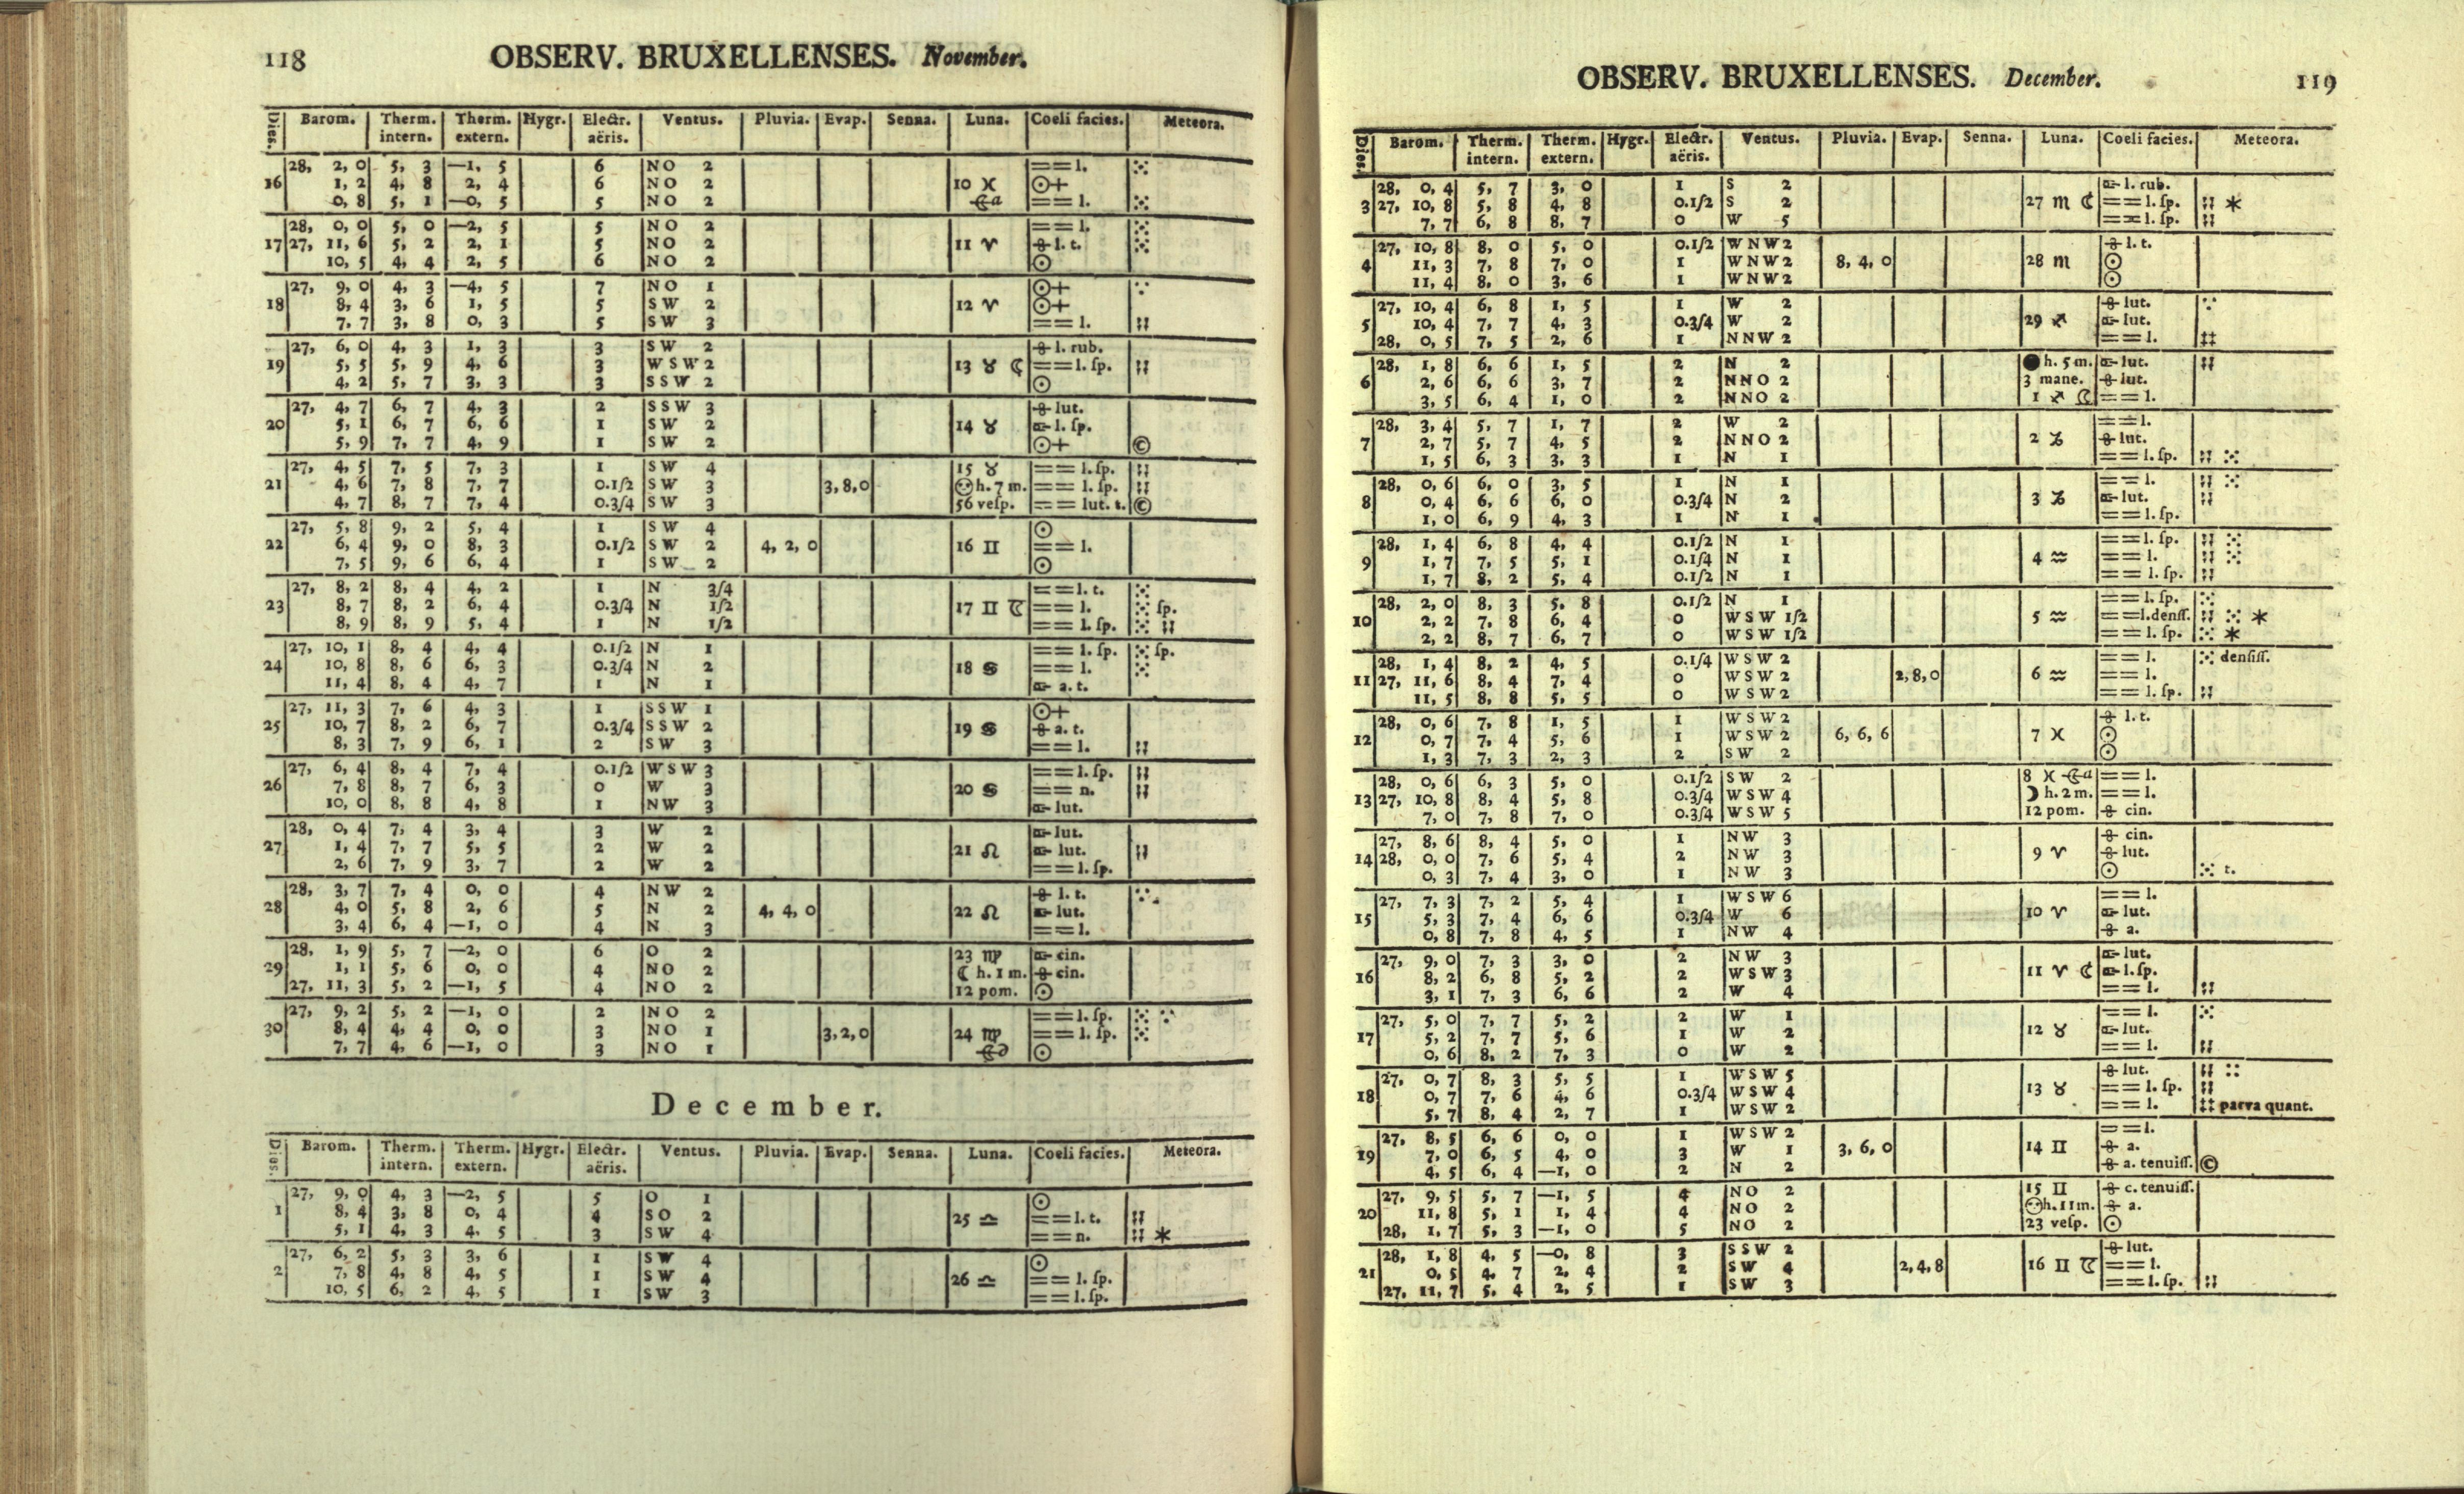 118 OBSERV. BRUXELLENSES. November.
Dies. Barom. Therm. intern. Therm. extern. Hygr. Electr. aëris. Ventus. Pluvia. Evap. Senna. Luna. Coeli facies. Meteora.
28, 2, 0 5, 3 —1, 5 6 NO 2 == l.
16 1, 2 4, 8 2, 4 6 NO 2 10 ♓ ☉+
0, 8 5, 1 —0, 5 5 NO 2 a == l.
28, 0, 0 5, 0 —2, 5 5 NO 2 == l.
17 27, 11, 6 5, 2 2, 1 5 NO 2 11 ♈ l. t.
10, 5 4, 4 2, 5 6 NO 2 ☉
27, 9, 0 4, 3 —4, 5 7 NO 1 ☉+
18 8, 4 3, 6 1, 5 5 SW 2 12 ♈ ☉+
7, 7 3, 8 0, 3 5 SW 3 == l.
27, 6, 0 4, 3 1, 3 3 SW 2 l. rub.
19 5, 5 5, 9 4, 6 3 WSW 2 13 ♉ ☾ == l. ſp.
4, 2 5, 7 3, 3 3 SSW 2 ☉
27, 4, 7 6, 7 4, 3 2 SSW 3 lut.
20 5, 1 6, 7 6, 6 1 SW 2 14 ♉ l. ſp.
5, 9 7, 7 4, 9 1 SW 2 ☉+ ©
27, 4, 5 7, 5 7, 3 1 SW 4 15 ♉ == l. ſp.
21 4, 6 7, 8 7, 7 0.1/2 SW 3 3, 8, 0 h. 7 m. == l. ſp.
4, 7 8, 7 7, 4 0.3/4 SW 3 56 veſp. == lut. t. ©
27, 5, 8 9, 2 5, 4 1 SW 4 ☉
22 6, 4 9, 0 8, 3 0.1/2 SW 2 4, 2, 0 16 ♊ == l.
7, 5 9, 6 6, 4 1 SW 2 ☉
27, 8, 2 8, 4 4, 2 1 N 3/4 == l. t.
23 8, 7 8, 2 6, 4 0.3/4 N 1/2 17 ♊ == l. ſp.
8, 9 8, 9 5, 4 1 N 1/2 == l. ſp.
27, 10, 1 8, 4 4, 4 0.1/2 N 1 == l. ſp. ſp.
24 10, 8 8, 6 6, 3 0.3/4 N 2 18 ♋ == l.
11, 4 8, 4 4, 7 1 N 1 a. t.
27, 11, 3 7, 6 4, 3 1 SSW 1 ☉+
25 10, 7 8, 2 6, 7 0.3/4 SSW 2 19 ♋ a. t.
8, 3 7, 9 6, 1 2 SW 3 == l.
27, 6, 4 8, 4 7, 4 0.1/2 WSW 3 == l. ſp.
26 7, 8 8, 7 6, 3 0 W 3 20 ♋ == n.
10, 0 8, 8 4, 8 1 NW 3 lut.
28, 0, 4 7, 4 3, 4 3 W 2 lut.
27 1, 4 7, 7 5, 5 2 W 2 21 ♌ lut.
2, 6 7, 9 3, 7 2 W 2 == l. ſp.
28, 3, 7 7, 4 0, 0 4 NW 2 l. t.
28 4, 0 5, 8 2, 6 5 N 2 4, 4, 0 22 ♌ lut.
3, 4 6, 4 —1, 0 4 N 3 == l.
28, 1, 9 5, 7 —2, 0 6 O 2 23 ♍ cin.
29 1, 1 5, 6 0, 0 4 NO 2 ☾ h. 1 m. cin.
27, 11, 3 5, 2 —1, 5 4 NO 2 12 pom. ☉
27, 9, 2 5, 2 —1, 0 2 NO 2 == l. ſp.
30 8, 4 4, 4 0, 0 3 NO 1 3, 2, 0 24 ♍ == l. ſp.
7, 7 4, 6 —1, 0 3 NO 1 ☉
December.
Dies. Barom. Therm. intern. Therm. extern. Hygr. Electr. aëris. Ventus. Pluvia. Evap. Senna. Luna. Coeli facies. Meteora.
27, 9, 0 4, 3 —2, 5 5 O 1 ☉
1 8, 4 3, 8 0, 4 4 SO 2 25 ♎ == l. t.
5, 1 4, 3 4, 5 3 SW 4 == n. *
27, 6, 2 5, 3 3, 6 1 SW 4 ☉
2 7, 8 4, 8 4, 5 1 SW 4 26 ♎ == l. ſp.
10, 5 6, 2 4, 5 1 SW 3 == l. ſp.
OBSERV. BRUXELLENSES. December. 119
Dies. Barom. Therm. intern. Therm. extern. Hygr. Electr. aëris. Ventus. Pluvia. Evap. Senna. Luna. Coeli facies. Meteora.
28, 0, 4 5, 7 3, 0 1 S 2 l. rub.
3 27, 10, 8 5, 8 4, 8 0.1/2 S 2 27 ♏ ☾ == l. ſp. *
7, 7 6, 8 8, 7 0 W 5 == l. ſp.
27, 10, 8 8, 0 5, 0 0.1/2 WNW 2 l. t.
4 11, 3 7, 8 7, 0 1 WNW 2 8, 4, 0 28 ♏ ☉
11, 4 8, 0 3, 6 1 WNW 2 ☉
27, 10, 4 6, 8 1, 5 1 W 2 lut.
5 10, 4 7, 7 4, 3 0.3/4 W 2 29 ♐ lut.
28, 0, 5 7, 5 2, 6 1 NNW 2 == l.
28, 1, 8 6, 6 1, 5 2 N 2 ● h. 5 m. lut.
6 2, 6 6, 6 3, 7 2 NNO 2 3 mane. lut.
3, 5 6, 4 1, 0 2 NNO 2 1 ♐ == l.
28, 3, 4 5, 7 1, 7 2 W 2 == l.
7 2, 7 5, 7 4, 5 2 NNO 2 2 ♑ lut.
1, 5 6, 3 3, 3 1 N 1 == l. ſp.
28, 0, 6 6, 0 3, 5 1 N 1 == l.
8 0, 4 6, 6 6, 0 0.3/4 N 2 3 ♑ lut.
1, 0 6, 9 4, 3 1 N 1 == l. ſp.
28, 1, 4 6, 8 4, 4 0.1/2 N 1 == l. ſp.
9 1, 7 7, 5 5, 1 0.1/4 N 1 4 ♒ == l.
1, 7 8, 2 5, 4 0.1/2 N 1 == l. ſp.
28, 2, 0 8, 3 5, 8 0.1/2 N 1 == l. ſp.
10 2, 2 7, 8 6, 4 0 WSW 1/2 5 ♒ == l. denſſ. *
2, 2 8, 7 6, 7 0 WSW 1/2 == l. ſp. *
28, 1, 4 8, 2 4, 5 0.1/4 WSW 2 == l. denſiſſ.
11 27, 11, 6 8, 4 7, 4 0 WSW 2 2, 8, 0 6 ♒ == l.
11, 5 8, 8 5, 5 0 WSW 2 == l. ſp.
28, 0, 6 7, 8 1, 5 1 WSW 2 l. t.
12 0, 7 7, 4 5, 6 1 WSW 2 6, 6, 6 7 ♓ ☉
1, 3 7, 3 2, 3 2 SW 2 ☉
28, 0, 6 6, 3 5, 0 0.1/2 SW 2 8 ♓ a == l.
13 27, 10, 8 8, 4 5, 8 0.3/4 WSW 4 ☽ h. 2 m. == l.
7, 0 7, 8 7, 0 0.3/4 WSW 5 12 pom. cin.
27, 8, 6 8, 4 5, 0 1 NW 3 cin.
14 28, 0, 0 7, 6 5, 4 2 NW 3 9 ♈ lut.
0, 3 7, 4 3, 0 1 NW 3 ☉ t.
27, 7, 3 7, 2 5, 4 1 WSW 6 == l.
15 5, 3 7, 4 6, 6 0.3/4 W 6 10 ♈ lut.
0, 8 7, 8 4, 5 1 NW 4 a.
27, 9, 0 7, 3 3, 0 2 NW 3 lut.
16 8, 2 6, 8 5, 2 2 WSW 3 11 ♈ ☾ l. ſp.
3, 1 7, 3 6, 6 2 W 4 == l.
27, 5, 0 7, 7 5, 2 2 W 1 == l.
17 5, 2 7, 7 5, 6 1 W 2 12 ♉ lut.
0, 6 8, 2 7, 3 0 W 2 == l.
27, 0, 7 8, 3 5, 5 1 WSW 5 lut.
18 0, 7 7, 6 4, 6 0.3/4 WSW 4 13 ♉ == l. ſp.
5, 7 8, 4 2, 7 1 WSW 2 == l. parva quant.
27, 8, 5 6, 6 0, 0 1 WSW 2 == l.
19 7, 0 6, 5 4, 0 3 W 1 3, 6, 0 14 ♊ a.
4, 5 6, 4 —1, 0 2 N 2 a. tenuiſſ. ©
27, 9, 5 5, 7 —1, 5 4 NO 2 15 ♊ c. tenuiſſ.
20 11, 8 5, 1 1, 4 4 NO 2 h. 11 m. a.
28, 1, 7 5, 3 —1, 0 5 NO 2 23 veſp. ☉
28, 1, 8 4, 5 —0, 8 3 SSW 2 lut.
21 0, 5 4, 7 2, 4 2 SW 4 2, 4, 8 16 ♊ == l.
27, 11, 7 5, 4 2, 5 1 SW 3 == l. ſp.